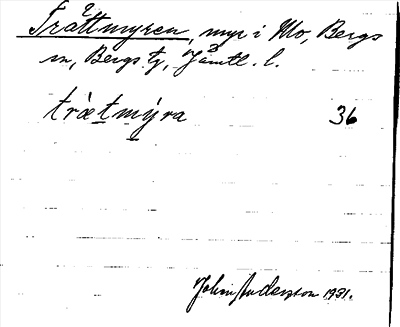 Trättmyren, myr i Mo, Bergs
sn, Bergs tg, Jämtl. l.
træ̀tmýra 36
John Anderzton 1931.